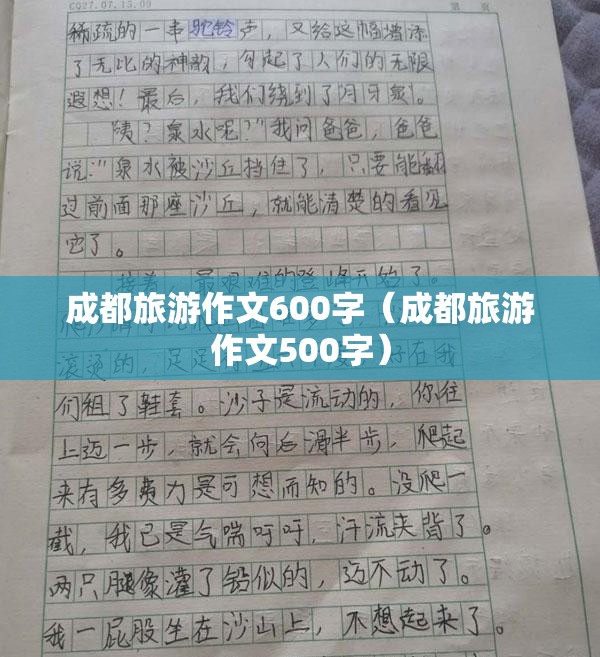 CQ27.07.15.09 第 页
稀疏的一串驼铃声，又给这幅增添
了无比的神韵，勾起了人们的无限
遐想！最后，我们绕到了月牙泉。
"咦？泉水呢？"我问爸爸，爸爸
说："泉水被沙丘挡住了，只要能翻
过前面那座沙丘，就能清楚的看见
它了。
接着，最艰难的登峰开始了。
成都旅游作文600字（成都旅游
作文500字）
滚烫的，足足 好在我
们租了鞋套。沙子是流动的，你往
上迈一步，就会向后滑半步，爬起
来有多费力是可想而知的。没爬一
截，我已是气喘吁吁，汗流夹背了。
两只腿像灌了铅似的，迈不动了。
我一屁股坐在沙山上，不想起来了。